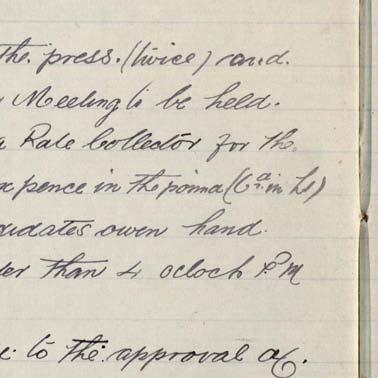 the press. (twice) and.
Meeting to be held.
a Rate Collector for the
pence in the pound (6d in £1)
didates owen hand.
ter than 4 oclock P.M
to the approval of.